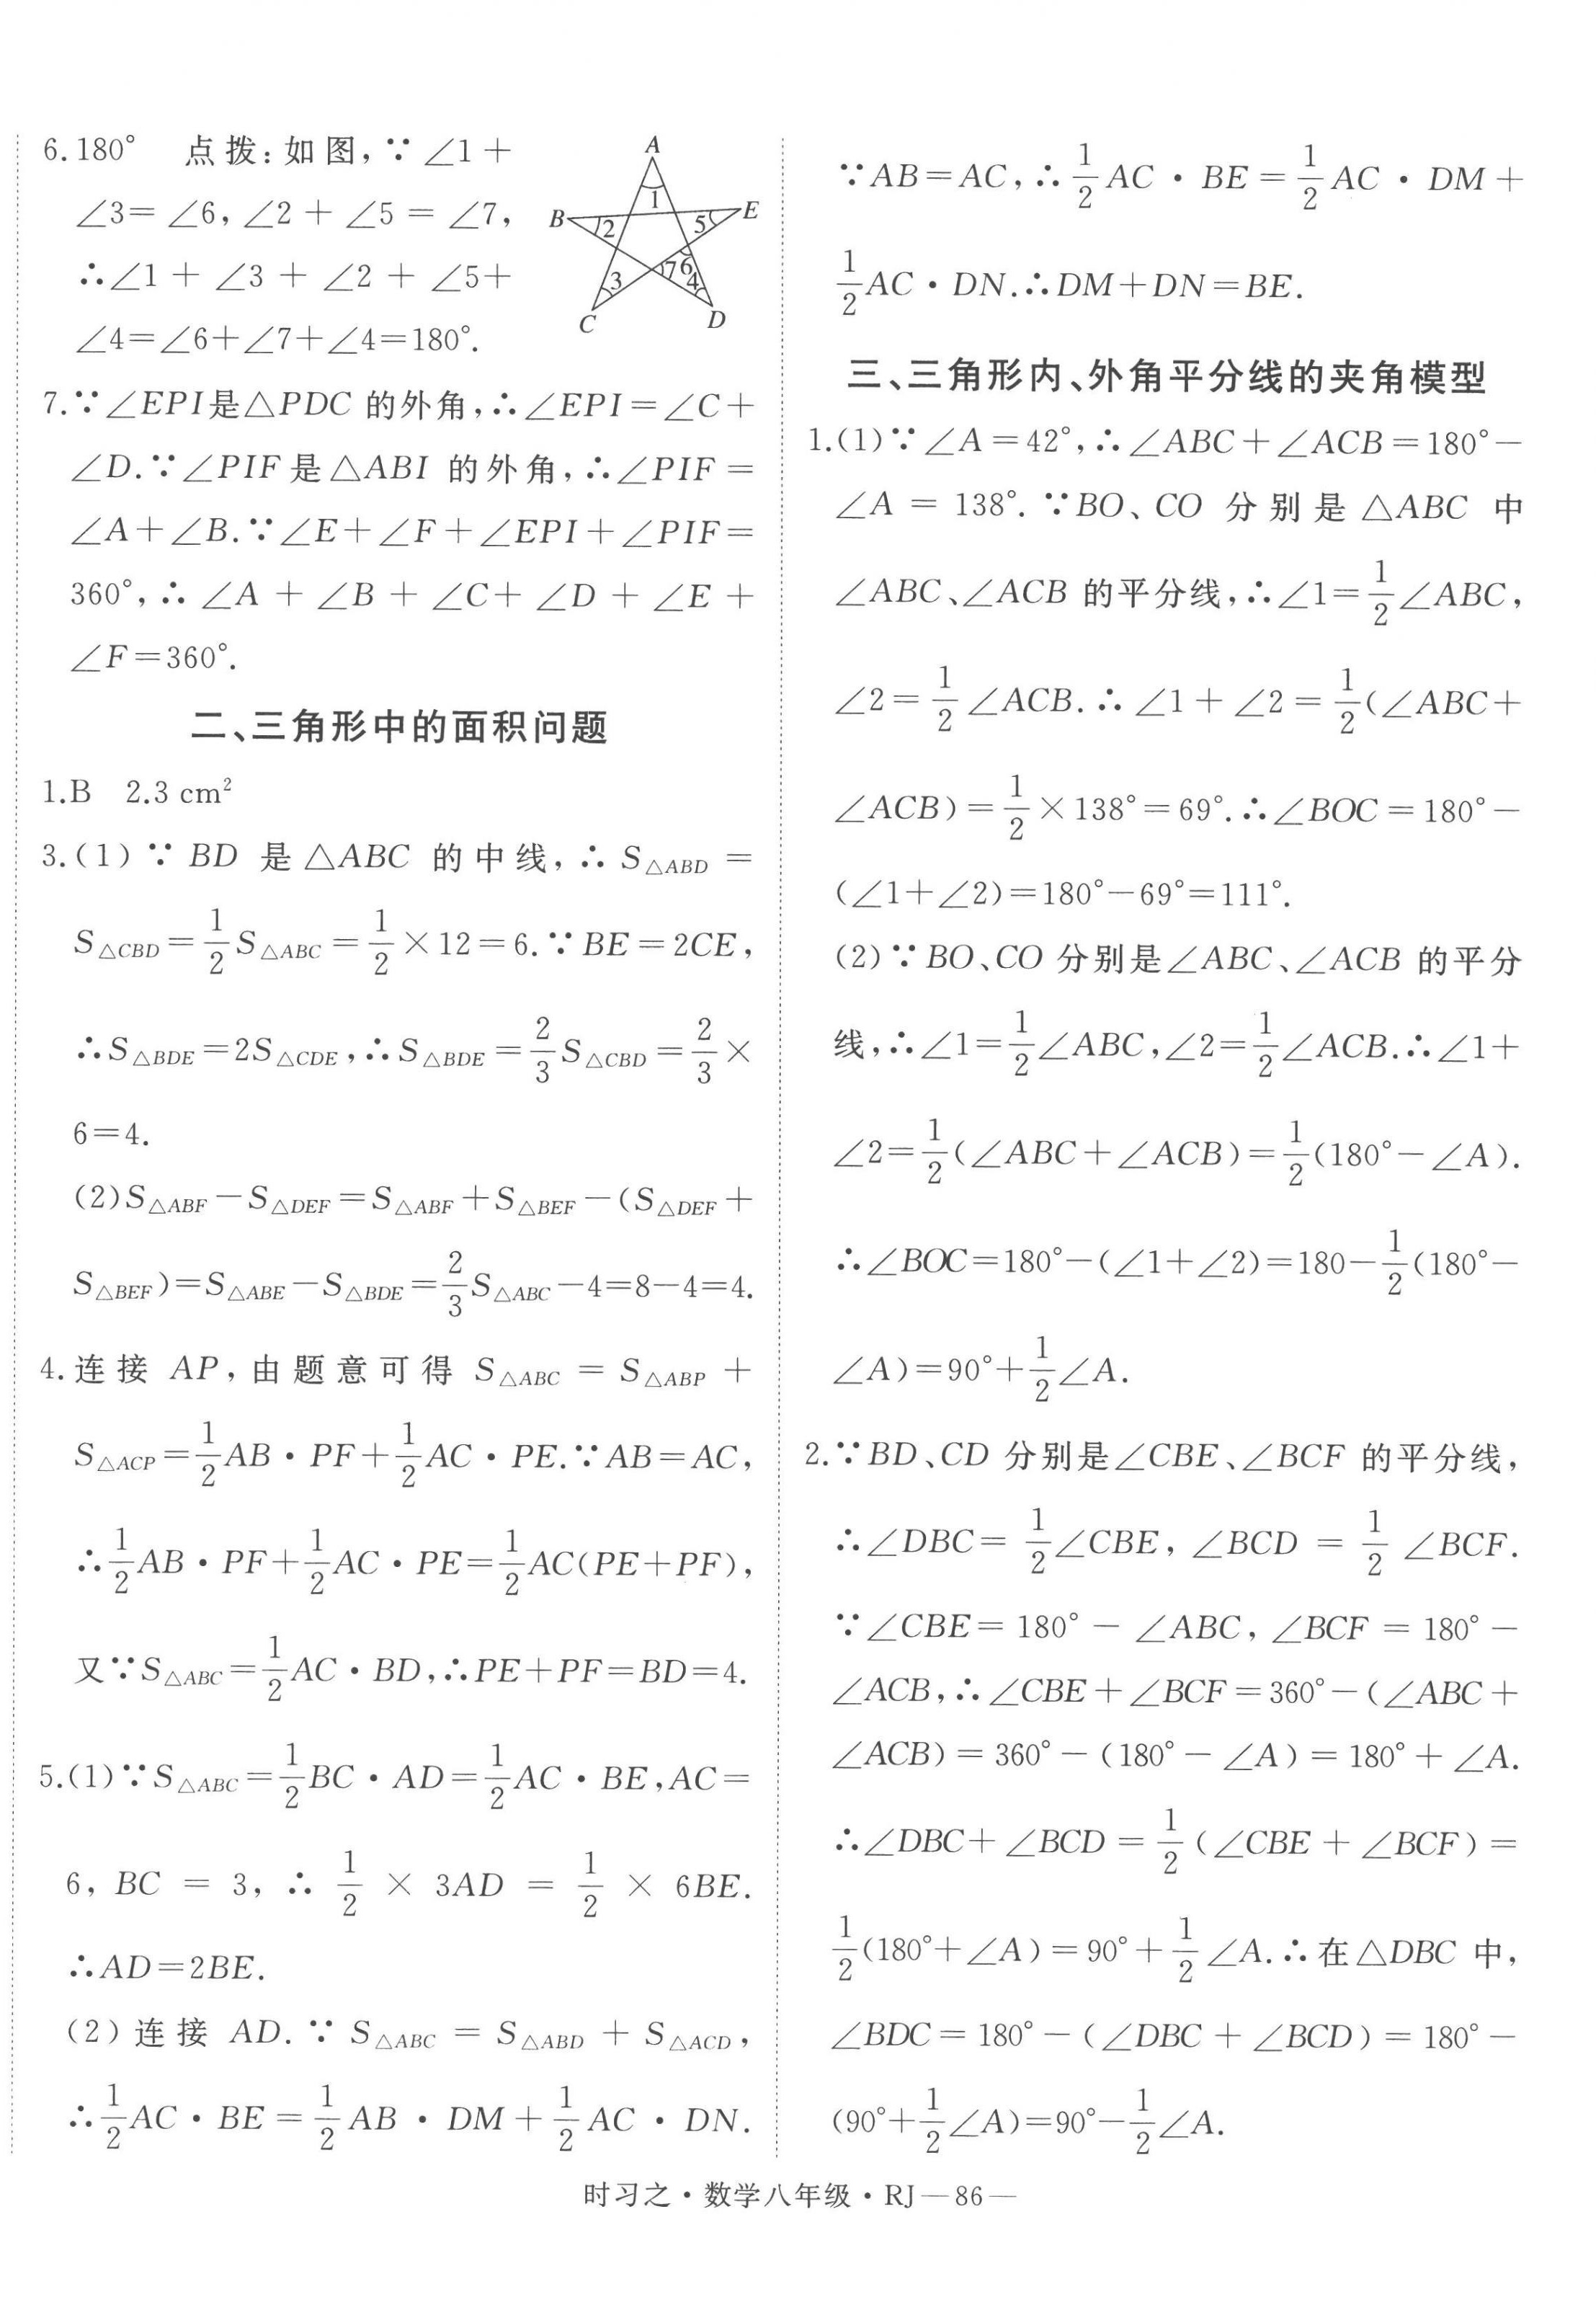 6.180° 点拨:如图,∵∠1+
∠3=∠6,∠2+∠5=∠7,
∴∠1+∠3+∠2+∠5+
∠4=∠6+∠7+∠4=180°.
A
1
B
2
5
E
3
7
6
4
C
D
7.∵∠EPI是△PDC的外角,∴∠EPI=∠C+
∠D.∵∠PIF是△ABI的外角,∴∠PIF=
∠A+∠B.∵∠E+∠F+∠EPI+∠PIF=
360°,∴∠A+∠B+∠C+∠D+∠E+
∠F=360°.
二、三角形中的面积问题
1.B 2.3 cm²
3.(1)∵BD是△ABC的中线,∴S△ABD=
S△CBD=1/2S△ABC=1/2×12=6.∵BE=2CE,
∴S△BDE=2S△CDE,∴S△BDE=2/3S△CBD=2/3×
6=4.
(2)S△ABF-S△DEF=S△ABF+S△BEF-(S△DEF+
S△BEF)=S△ABE-S△BDE=2/3S△ABC-4=8-4=4.
4.连接AP,由题意可得S△ABC=S△ABP+
S△ACP=1/2AB·PF+1/2AC·PE.∵AB=AC,
∴1/2AB·PF+1/2AC·PE=1/2AC(PE+PF),
又∵S△ABC=1/2AC·BD,∴PE+PF=BD=4.
5.(1)∵S△ABC=1/2BC·AD=1/2AC·BE,AC=
6,BC=3,∴1/2×3AD=1/2×6BE.
∴AD=2BE.
(2)连接AD.∵S△ABC=S△ABD+S△ACD,
∴1/2AC·BE=1/2AB·DM+1/2AC·DN.
∵AB=AC,∴1/2AC·BE=1/2AC·DM+
1/2AC·DN.∴DM+DN=BE.
三、三角形内、外角平分线的夹角模型
1.(1)∵∠A=42°,∴∠ABC+∠ACB=180°-
∠A=138°.∵BO、CO分别是△ABC中
∠ABC、∠ACB的平分线,∴∠1=1/2∠ABC,
∠2=1/2∠ACB.∴∠1+∠2=1/2(∠ABC+
∠ACB)=1/2×138°=69°.∴∠BOC=180°-
(∠1+∠2)=180°-69°=111°.
(2)∵BO、CO分别是∠ABC、∠ACB的平分
线,∴∠1=1/2∠ABC,∠2=1/2∠ACB.∴∠1+
∠2=1/2(∠ABC+∠ACB)=1/2(180°-∠A).
∴∠BOC=180°-(∠1+∠2)=180-1/2(180°-
∠A)=90°+1/2∠A.
2.∵BD、CD分别是∠CBE、∠BCF的平分线,
∴∠DBC=1/2∠CBE,∠BCD=1/2∠BCF.
∵∠CBE=180°-∠ABC,∠BCF=180°-
∠ACB,∴∠CBE+∠BCF=360°-(∠ABC+
∠ACB)=360°-(180°-∠A)=180°+∠A.
∴∠DBC+∠BCD=1/2(∠CBE+∠BCF)=
1/2(180°+∠A)=90°+1/2∠A.∴在△DBC中,
∠BDC=180°-(∠DBC+∠BCD)=180°-
(90°+1/2∠A)=90°-1/2∠A.
时习之·数学八年级·RJ—86—